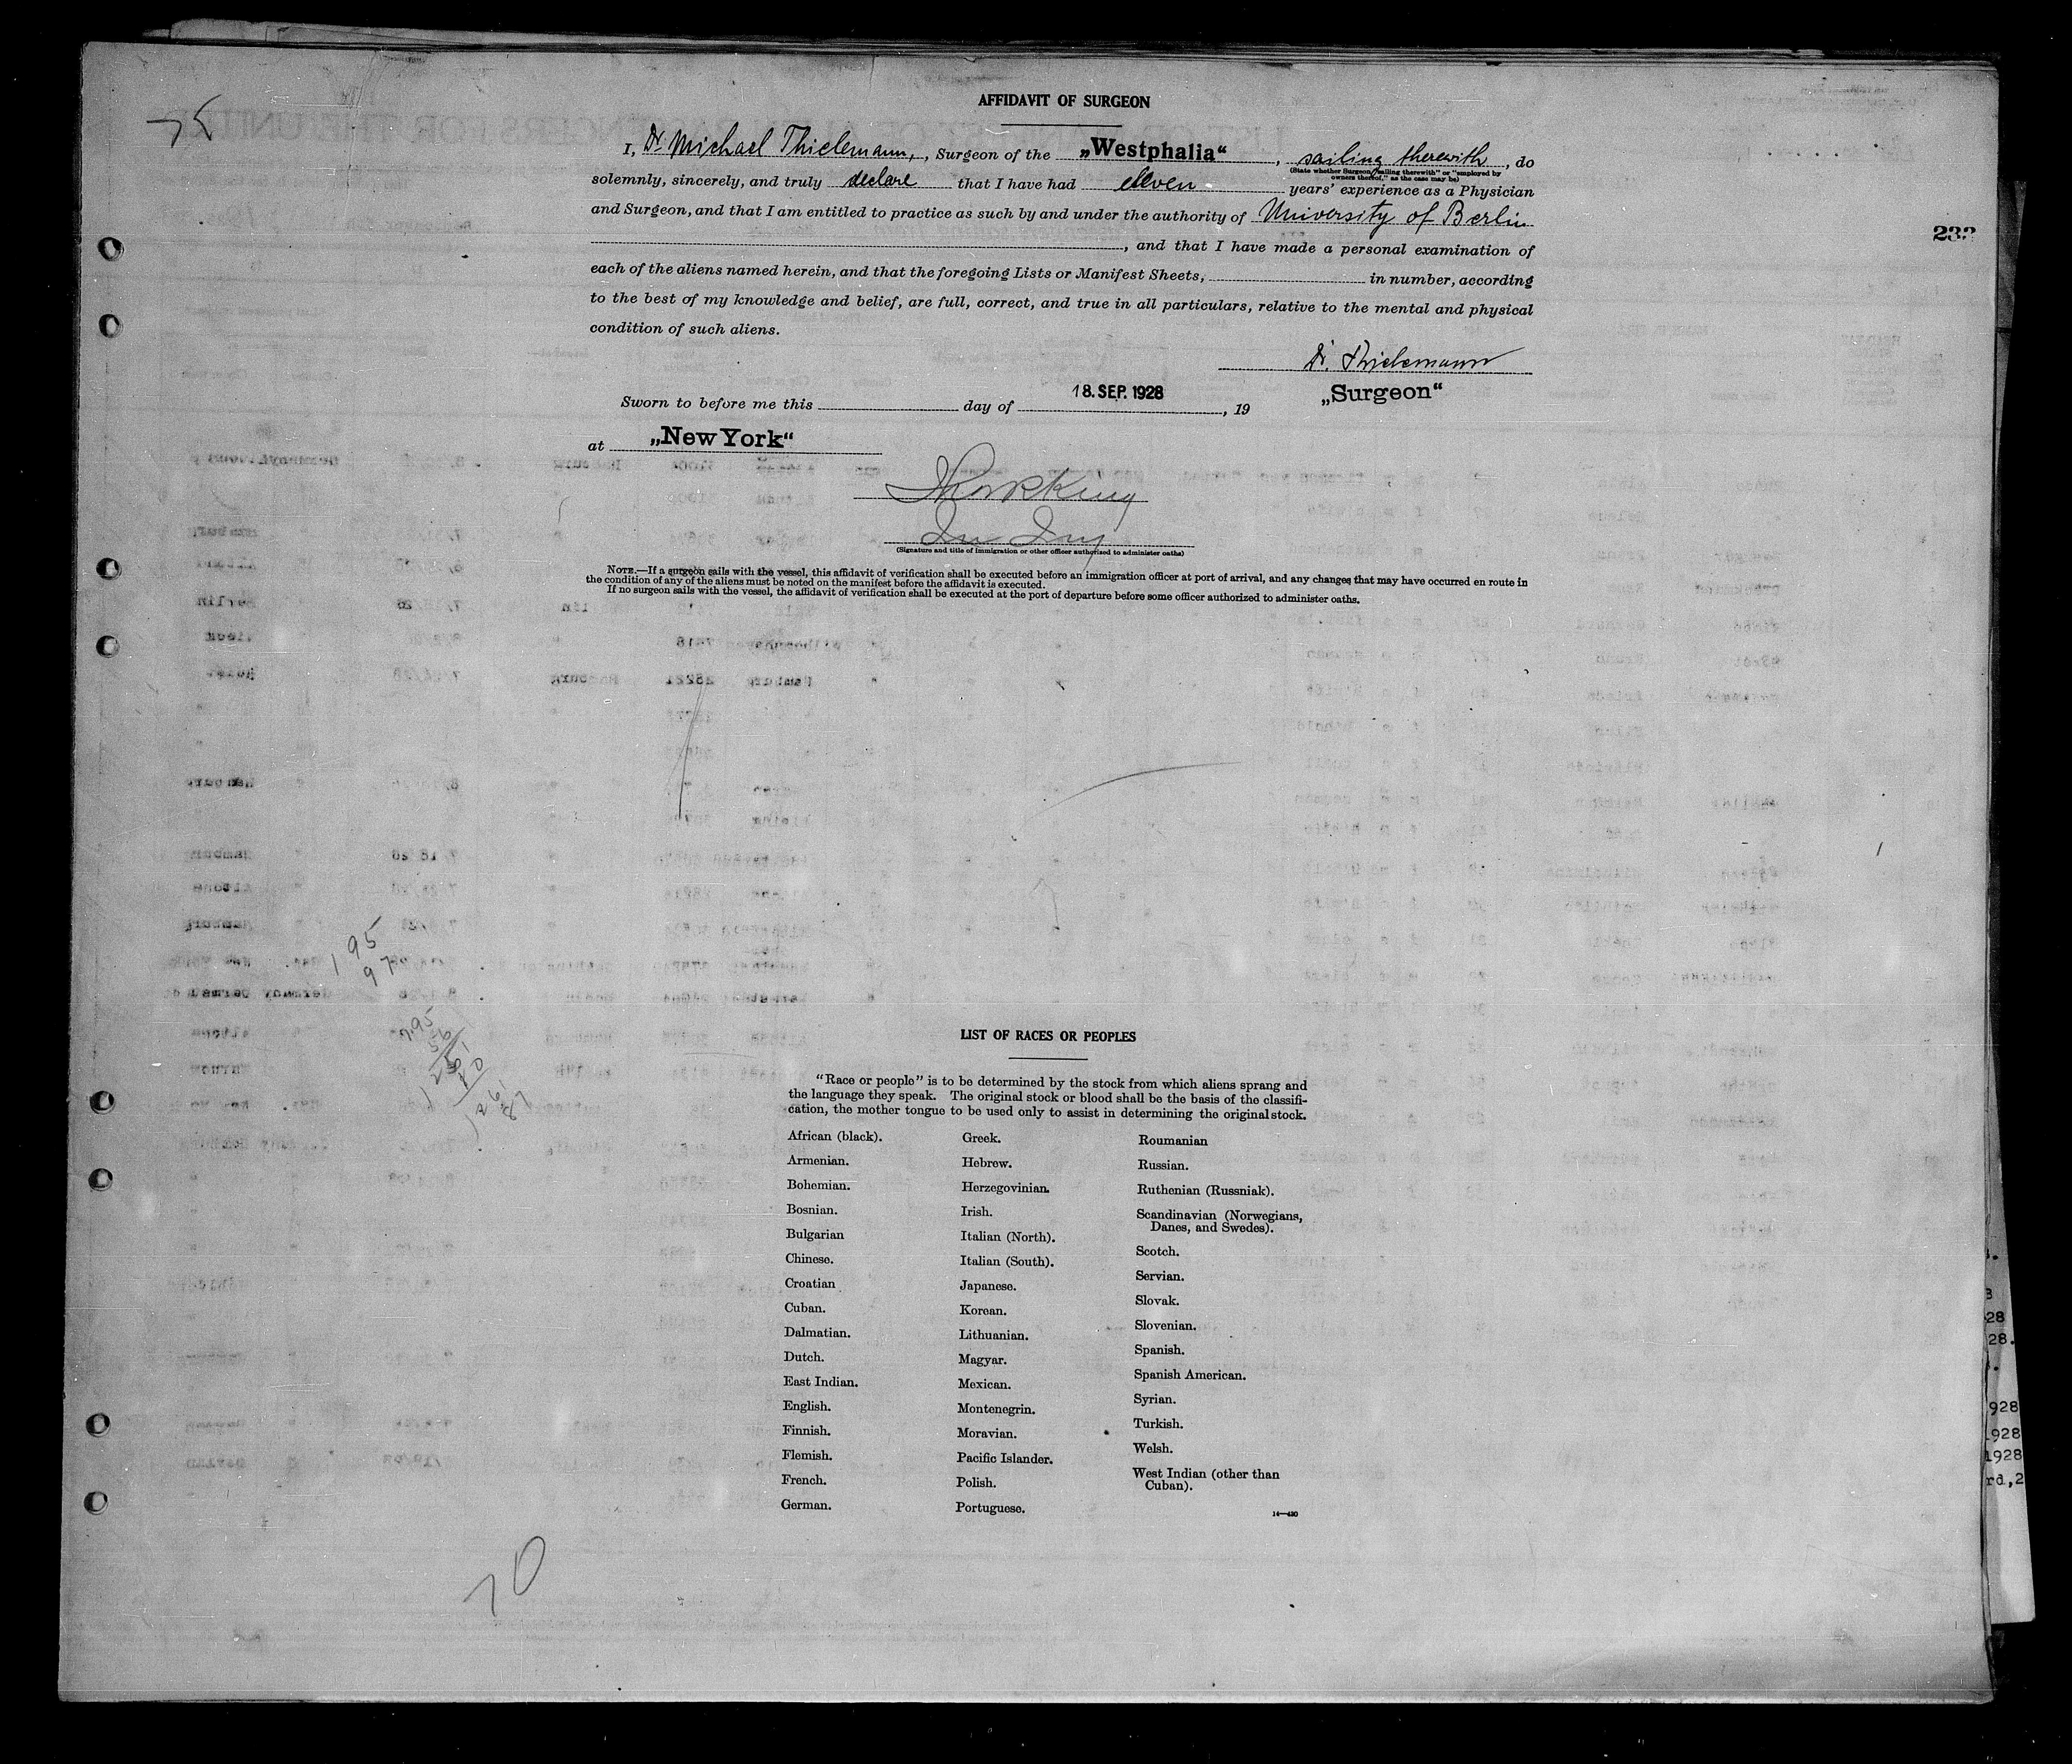 AFFIDAVIT OF SURGEON
I, Dr. Michael Thielemann, , Surgeon of the „Westphalia“ , sailing therewith , do
(State whether Surgeon "sailing therewith" or "employed by
owners thereof," as the case may be)
solemnly, sincerely, and truly declare that I have had eleven years' experience as a Physician
and Surgeon, and that I am entitled to practice as such by and under the authority of University of Berlin
, and that I have made a personal examination of
each of the aliens named herein, and that the foregoing Lists or Manifest Sheets, in number, according
to the best of my knowledge and belief, are full, correct, and true in all particulars, relative to the mental and physical
condition of such aliens.
Dr. Thielemann
„Surgeon“
18. SEP. 1928
Sworn to before me this day of , 19
at „New York“
(Signature and title of immigration or other officer authorized to administer oaths)
NOTE.—If a surgeon sails with the vessel, this affidavit of verification shall be executed before an immigration officer at port of arrival, and any changes that may have occurred en route in
the condition of any of the aliens must be noted on the manifest before the affidavit is executed.
If no surgeon sails with the vessel, the affidavit of verification shall be executed at the port of departure before some officer authorized to administer oaths.
195
97
LIST OF RACES OR PEOPLES
"Race or people" is to be determined by the stock from which aliens sprang and
the language they speak. The original stock or blood shall be the basis of the classifi-
cation, the mother tongue to be used only to assist in determining the original stock.
African (black).
Armenian.
Bohemian.
Bosnian.
Bulgarian
Chinese.
Croatian
Cuban.
Dalmatian.
Dutch.
East Indian.
English.
Finnish.
Flemish.
French.
German.
Greek.
Hebrew.
Herzegovinian.
Irish.
Italian (North).
Italian (South).
Japanese.
Korean.
Lithuanian.
Magyar.
Mexican.
Montenegrin.
Moravian.
Pacific Islander.
Polish.
Portuguese.
Roumanian
Russian.
Ruthenian (Russniak).
Scandinavian (Norwegians,
Danes, and Swedes).
Scotch.
Servian.
Slovak.
Slovenian.
Spanish.
Spanish American.
Syrian.
Turkish.
Welsh.
West Indian (other than
Cuban).
14—430
70